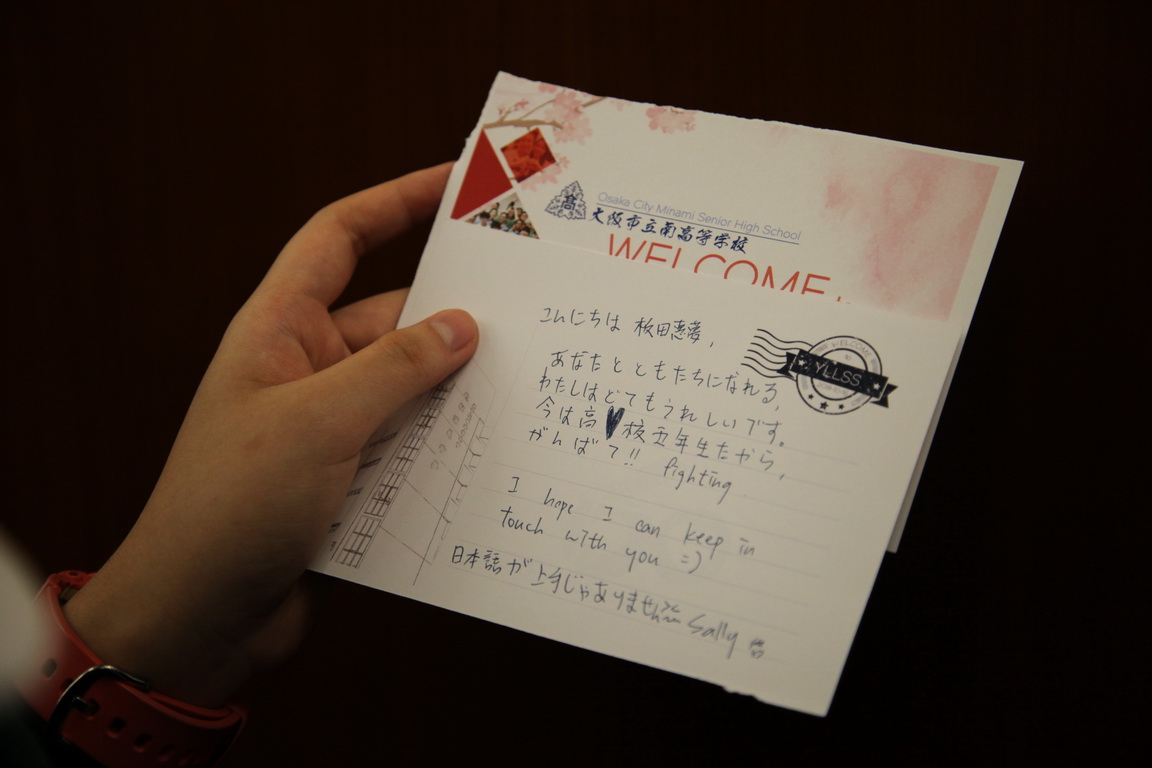 Osaka City Minami Senior High School
高
大阪市立南高等学校
WELCOME
こんにちは 板田恵夢,
あなたとともたちになれる,
わたしはとてもうれしいです。
今は高校五年生だから,
がんばて!! fighting
I hope I can keep in
touch with you =)
日本語が上手じゃありません
Sally
WELCOME
YLLSS